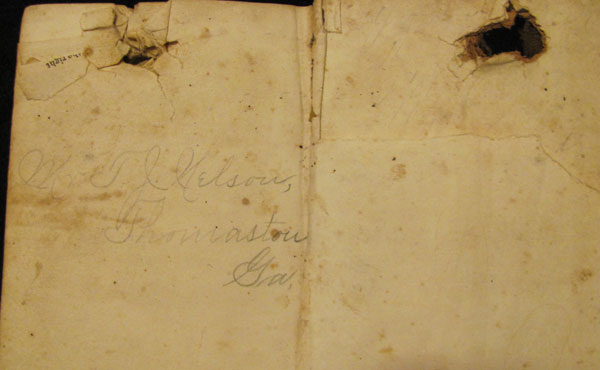 Mr T. J. Nelson,
Thomaston
Ga.